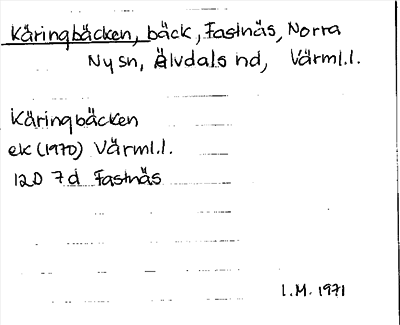 Käringbäcken, bäck, Fastnäs, Norra
Ny sn, Älvdals hd, Värml.l.
Käringbäcken
ek (1970) Värml.l.
12D 7d Fastnäs
I.M. 1971